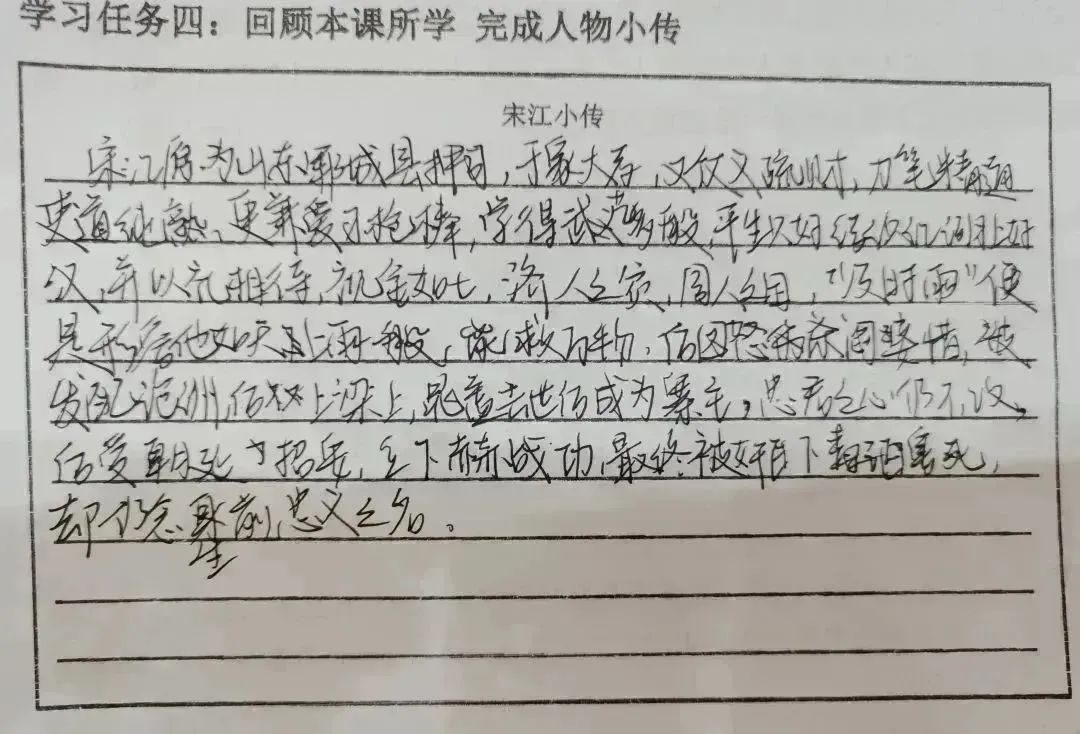 学习任务四：回顾本课所学 完成人物小传
宋江小传
宋江原为山东郓城县押司，于家大孝，又仗义疏财，刀笔精通
吏道纯熟、更兼爱习枪棒，学得武艺多般，平生只好结识江湖上好
汉，并以礼相待，视金如土，济人之贫，周人之困，"及时雨"便
是形容他如天上雨一般，能救万物，后因怒杀阎婆惜，被
发配江州，后被上梁上，晁盖去世后成为寨主，忠君之心仍不改，
后受朝廷招安，立下赫赫战功，最终被奸臣下毒酒害死，
却仍念生前忠义之名。